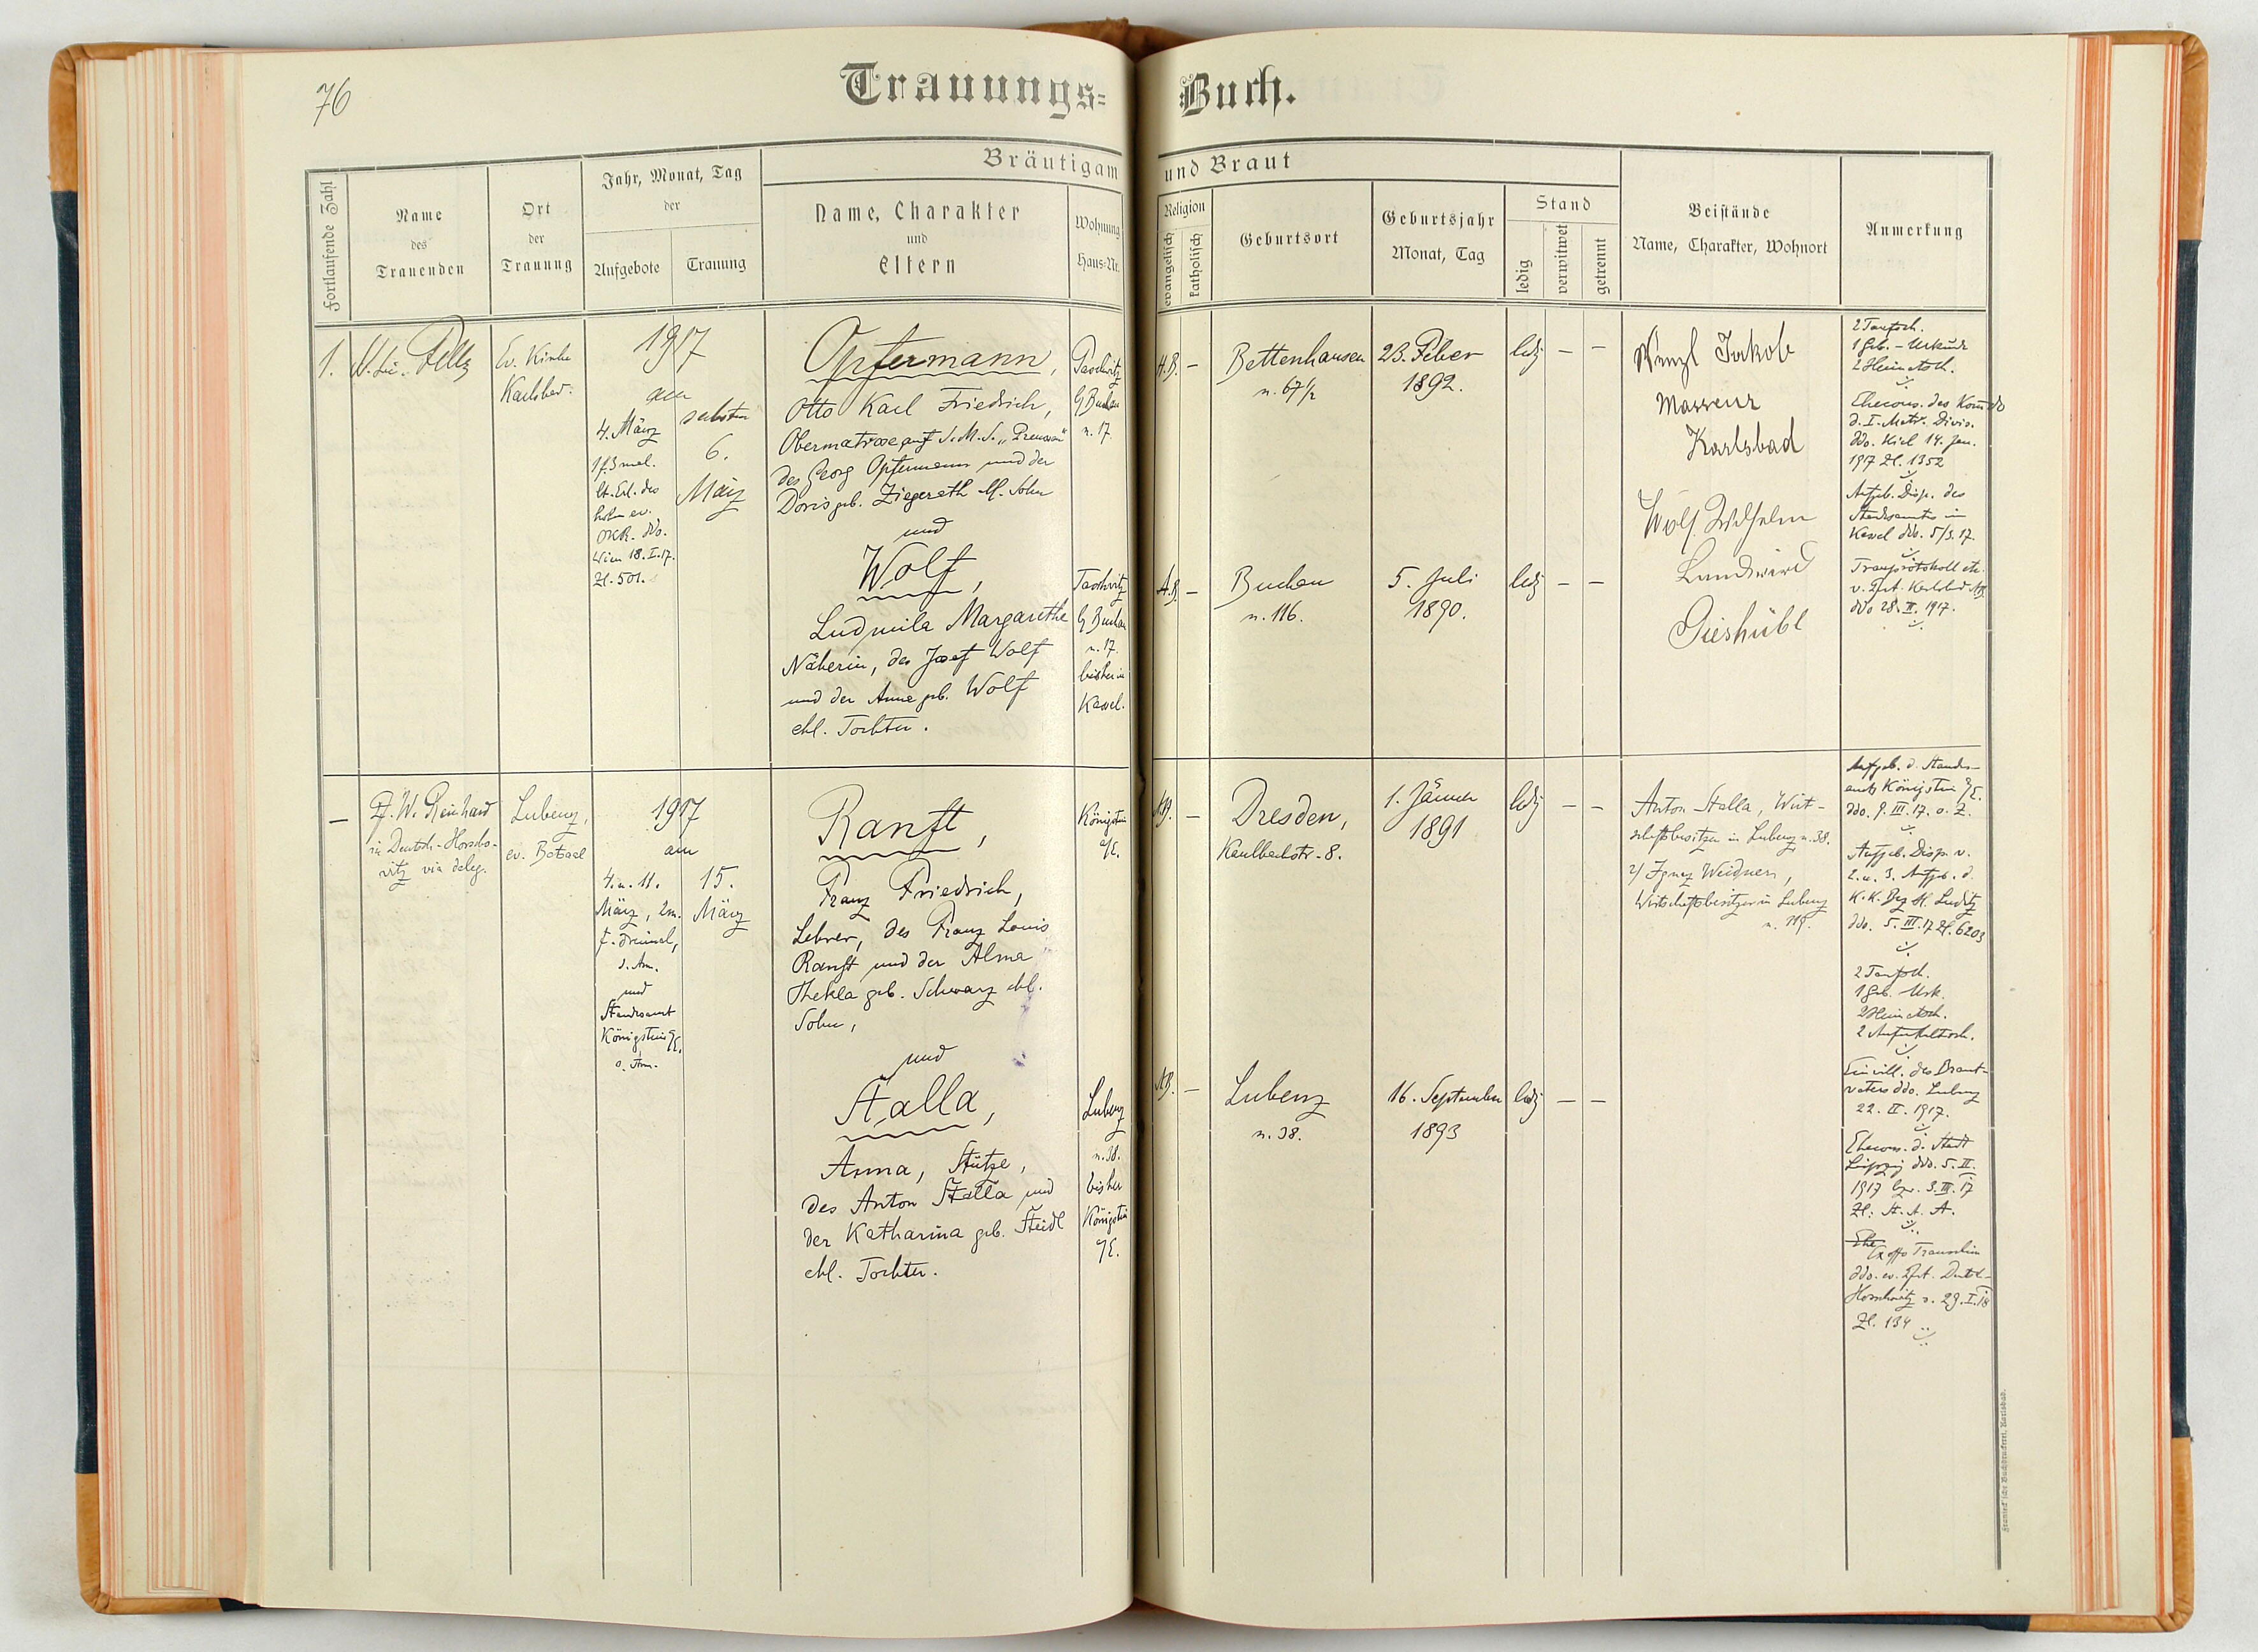 76
Trauungs=
Buch.
Bräutigam
und Braut
Fortlaufende Zahl
Name
des
Trauenden
Ort
der
Trauung
Jahr, Monat, Tag
der
Aufgebote
Trauung
Name, Charakter
und
Eltern
Wohnung
Haus=Nr.
Religion
evangelisch
katholisch
Geburtsort
Geburtsjahr
Monat, Tag
Stand
ledig
verwitwet
getrennt
Beistände
Name, Charakter, Wohnort
Anmerkung
1.
Ev. Kirche
Karlsbad.
1917
am
4. März
1 f. 3 mal.
lt. Erl. des
hohen ev.
OKR. ddo.
Wien 18. I. 17.
Zl. 501.
6.
März
Opfermann,
Otto Karl Friedrich,
Obermatrose auf S.M.S. "Preussen"
des Georg Opfermann und der
Doris geb. Ziegereth ehl. Sohn
und
Wolf,
Ludmila Margarethe
Näherin, des Josef Wolf
und der Anna geb. Wolf
ehl. Tochter.
n. 17.
Taschwitz
n. 17.
bisher in
Kassel.
A.B.
–
Bettenhausen
n. 67 1/2
23. Feber
1892.
ledig
–
–
A.B.
–
Buchau
n. 116.
5. Juli
1890.
ledig
–
–
Wenzl Jakob
Masseur
Karlsbad
Wolf Wilhelm
Landwird
Gieshübl
2 Taufsch.
1 Geb. - Urkunde
2 Heimatsch.
Ehecons. des Komdo
d. I. Matr. Divis.
ddo. Kiel 14. Jan.
1917 Zl. 1352
Aufgeb. Disp. des
Standesamtes in
Kassel ddo. 5/3. 17.
ddo 28. II. 1917.
–
Pf. W. Reinhard
in Deutsch-Horscho-
witz via deleg.
Lubenz,
ev. Betsaal
1917
am
4. u. 11.
März, 2m.
f. dreimal,
und
Standesamt
Königstein a/E.
15.
März
Ranft,
Franz Friedrich,
Lehrer, des Franz Louis
Ranft und der Alma
Thekla geb. Schwarz ehl.
Sohn,
und
Stalla,
Anna, Stütze,
des Anton Stalla und
der Katharina geb. Steidl
ehl. Tochter.
Königstein
a/E.
Lubenz
n. 38.
bisher
Königstein
a/E.
A.B.
–
Dresden,
Kaulbachstr. 8.
1. Jänner
1891
ledig
–
–
A.B.
–
Lubenz
n. 38.
16. September
1893
ledig
–
–
Anton Stalla, Wirt-
schaftsbesitzer in Lubenz n. 38.
2/ Ignaz Weidner,
Wirtschaftsbesitzer in Lubenz
Aufgeb. d. Standes-
amts Königstein a/E.
ddo. 9. III. 17. o. Z.
Aufgeb. Disp. v.
2. u. 3. Aufgeb. d.
K.K. Bez. H. Luditz
ddo. 5. III. 17 Zl. 6203
2 Taufsch.
1 Geb. Urk.
2 Heimatsch.
2 Aufenthaltssch.
Einwill. des Braut-
vaters ddo. Lubenz
22. II. 1917.
Ehecons. d. Stadt
Leipzig ddo. 5. II.
Ehe
Ex offo Trauschein
ddo. ev. Pfrt. Deutsch-
Horschowitz v. 29. I. 18
Zl. 134